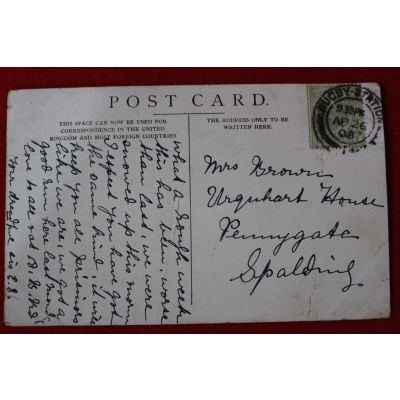 POST CARD.
THIS SPACE CAN NOW BE USED FOR
CORRESPONDENCE IN THE UNITED
KINGDOM AND MOST FOREIGN COUNTRIES
THE ADDRESS ONLY TO BE
WRITTEN HERE.
RUGBY-STATION
9.30PM
AP 26
08
Mrs Brown
Urquhart House
Pennygate
Spalding
What a rough week
this has been, worse
than last, we were
snowed up this morn
I expect you have got
the same kind, it will
keep you all prisoners
like we are, we got a
good run here last mond
love to all
Your